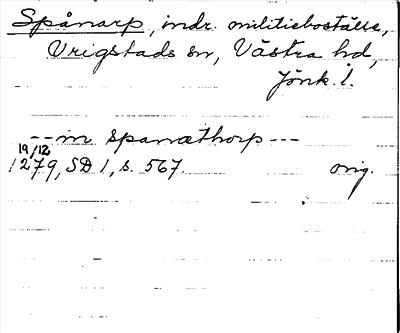 Spånarp, indr. militieboställe,
Vrigstads sn, Västra hd,
Jönk. l.
--- in spanæthorp ---
19/12
1279, SD 1, s. 567. orig.